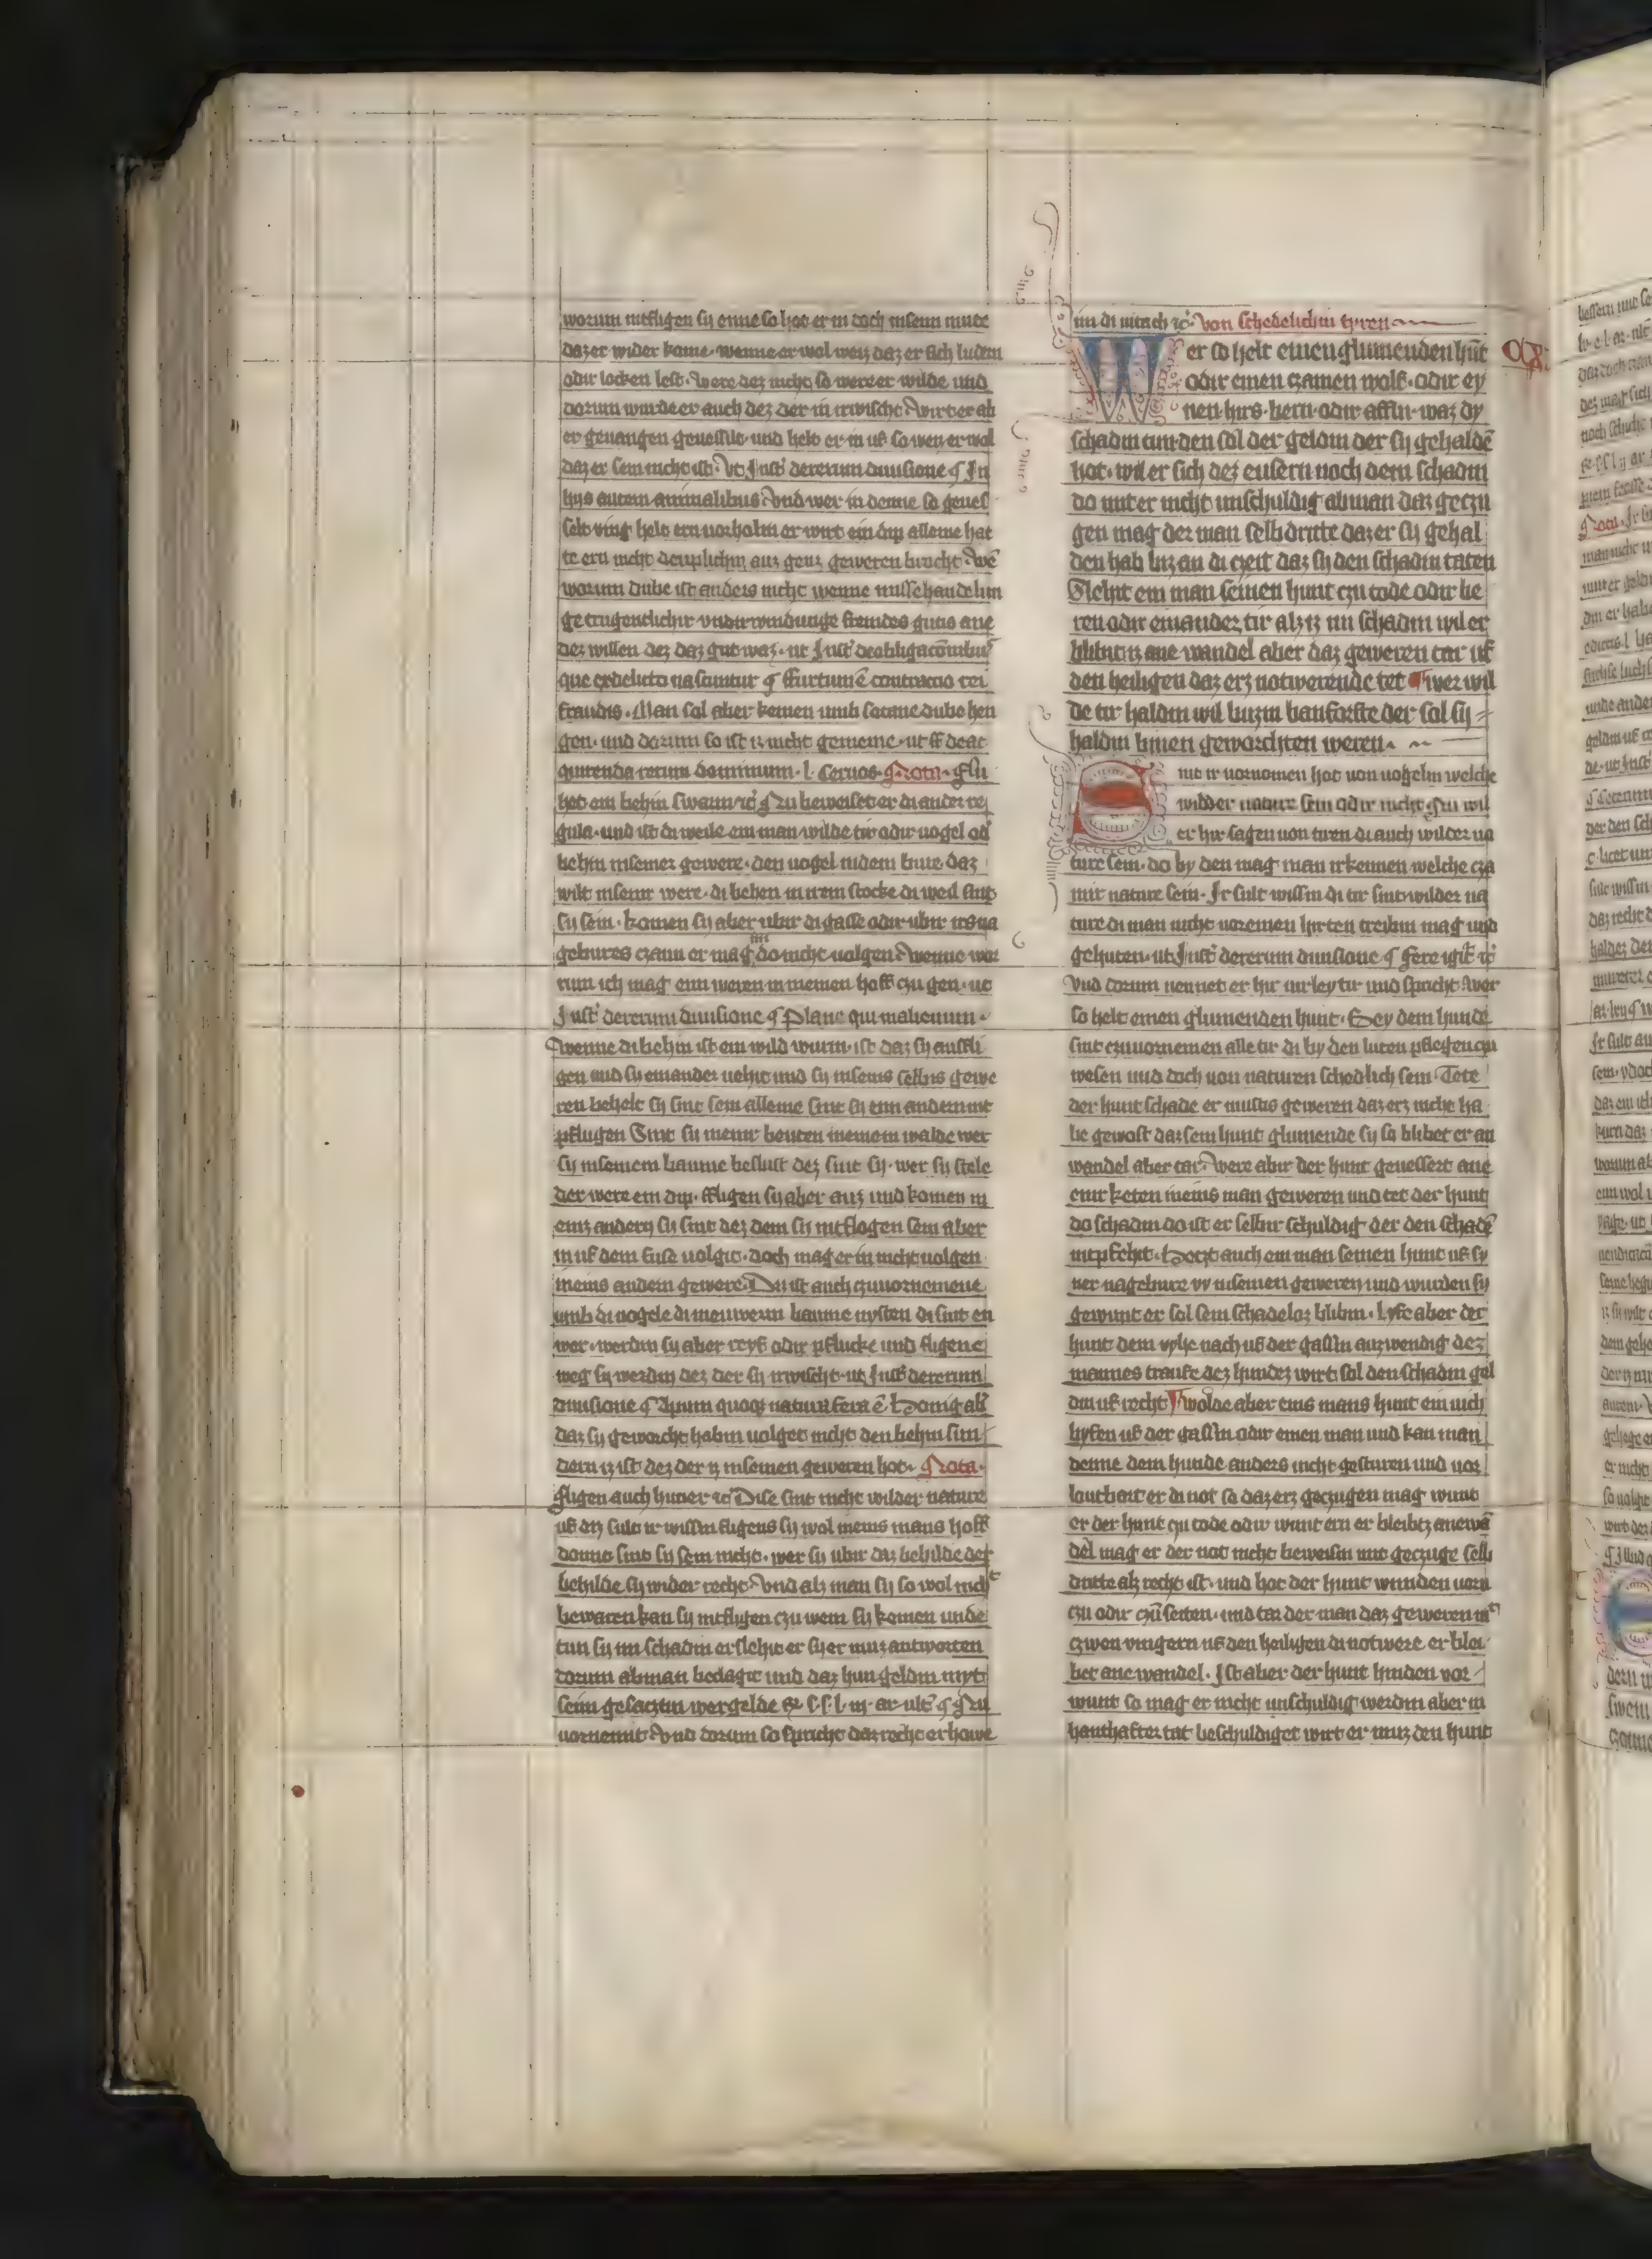 worum intfligen sy enne so hot er in doch insenn mute
daz er wider kome. wenne er wol weiz daz er sich ludern
odir locken lest. Were dez nicht so were er wilde und
dorum wurde er auch dez der in irwischt. Wirt er ab
er geuangen geuessilt und helt er in uf so wen er wol
daz er sein nicht ist. Vt Inst de rerum diuisione ¶ In
hijs autem animalibus. Vnd wer in denne so geues
selt ving helt ern uorholin er wirt ein dip alleine hat
te ern nicht deuplichin auz genz geweren bracht. Wē
worum dube ist anders nicht wenne missehandelun
ge trugentlichir vndirwindunge fremdes gutis ane
dez willen dez daz gut waz. ut Inst de obligacōnibus
que ex delicto nascuntur ¶ ffurtum ē contractio rei
fraudis. Man sol aber keinen umb sotane dube hen
gen. und dorum so ist iz nicht gemeine. ut ff de ac
quirenda rerum dominium. l. Ceruos. Nota. Fli
het ein behin swarm ꝛc̄ Nu beweiset er di ander re
gula. und ist di weile ein man wilde tir odir uogel od
behin in seiner gewere. den uogel in dem bure daz
wilt in seinir were. di behen in irem stocke di weil sint
sy sein. komen sy aber ubir di gasse odir ubir iris na
geburs czaun er mag im do nicht uolgen. Wenne wor
rum ich mag enn weren in meinen hoff czu gen. ut
Inst de rerum diuisione ¶ Plane qui in alienum.
Wenne di behin ist ein wild wurm. ist daz sy ausfli
gen und sy einander uehit und sy in seins selbis gewe
ren behelt sy sint sein alleine sint sy enn andern int
pflugen Sint sy meinr beuten in einem walde wer
sy in seinem baume beslust dez sint sy. wer sy stele
der were ein dip. ffligen sy aber auz und komen in
einz andern sy sint dez dem sy intflogen sein aber
in uf dem fuse uolgit. doch mag er in nicht uolgen
in eins andern gewere. Diz ist auch czuuornemene
umb di uogele di in euwerm baume nysten di sint en
wer. werdin sy aber reyf odir pflucke und fligene
weg sy werdin dez der sy irwischt. ut Inst de rerum
diuisione ¶ Apium quoqꝫ natura fera ē Honig abir
daz sy geworcht habin uolget nicht den behin sun
dern iz ist dez der iz in seinen geweren hot. Nota.
Fligen auch huner ꝛc̄ Dise sint nicht wilder nature
uf diz sult ir wissin fligens sy wol in eins mans hoff
donno sint sy sein nicht. wer sy ubir daz behilde der
behilde sy wider recht. Vnd alz man sy so wol nicht
bewaren kan sy intfligen czu wem sy komen unde
tun sy im schadin erslehit er sy er muz antworten
dorum ab man bedagit und daz hun geldin myt
seim gesacztin wergelde
uornemit. Vnd dorum so spricht daz recht er howe
im di uitach ꝛc̄. Von schedelichin tyren
Wer so helt einen glumenden hūt
odir einen czamen wolf. odir ey
nen hirs. bern odir affin. waz dy
schadin tun den sol der geldin der sy gehaldē
hot. wil er sich dez eusern noch dem schadin
do mit er nicht unschuldig ab man daz geczu
gen mag dez man selb dritte daz er sy gehal
den hab biz an di czeit daz sy den schadin taten
Slehit ein man seinen hunt czu tode odir be
ren odir einander tir alz iz im schadin wil er
blibit iz ane wandel aber daz geweren tar uf
den heiligen daz erz notwerende tet ¶ Wer wil
de tir haldin wil buzin banforste der sol sy
haldin binen geworchten weren.
Sint ir uornomen hot uon uogelin welche
wilder nature sein odir nicht. Nu wil
er hir sagen uon tiren di auch wilder na
ture sein. do by den mag man irkennen welche cza
mir nature sein. Ir sult wissin di tir sint wilder na
ture di man nicht uor einen hirten treibin mag und
gehuten. ut Inst de rerum diuisione ¶ fere igit̄ ꝛc̄
Vnd dorum nennet er hir uirley tir und spricht Wer
so helt einen glumenden hunt. Bey dem hunde
sint czuuornemen alle tir di by den luten pflegen czu
wesen und doch uon naturen schedlich sein. Tete
der hunt schade er mustis geweren daz erz nicht ha
be gewost daz sein hunt glumende sy so blibet er an
wandel aber tar. Were abir der hunt geuessert ane
einr keten in eins man geweren und tet der hunt
do schadin do ist er selbir schuldig der den schadē
intpfehit. Hetzt auch ein man seinen hunt uf sy
ner nagebure vy in seinen geweren und wurden sy
gewunt er sol sein schadeloz blibin. Lyfe aber der
hunt dem vyhe nach uf der gassin auzwendig dez
mannes traufe dez hundez wirt sol den schadin gel
din uf recht ¶ Wolde aber eins mans hunt ein uich
byſen uf der gassin odir einen man und kan man
denne dem hunde anders nicht gesturen und uor
loutbart er di not so daz erz geczugen mag wunt
er der hunt czu tode odir wunt ern er bleibtz ane wā
del mag er der not nicht beweisin mit geczuge selb
dritte alz recht ist. und hot der hunt wunden uorn
czu odir czū seiten. und tar der man daz geweren mit
czwen vingern uf den heiligen di notwere er blei
bet ane wandel. Ist aber der hunt hinden vor
wunt so mag er nicht unschuldig werdin aber in
hanthafter tat beschuldiget wirt er muz den hunt